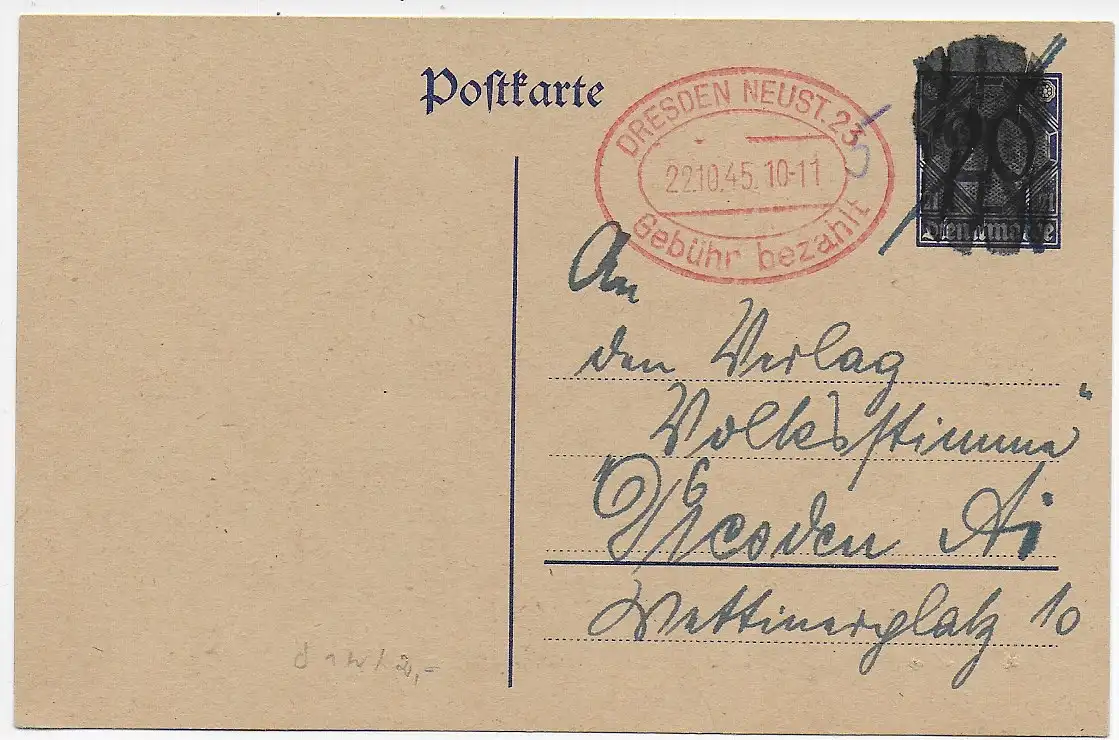 Postkarte
DRESDEN NEUST. 23
22.10.45. 10-11
Gebühr bezahlt
20
21 21
Dienstmarke
An
den Verlag
Volksstimme"
Dresden A1
Wettinerplatz 10